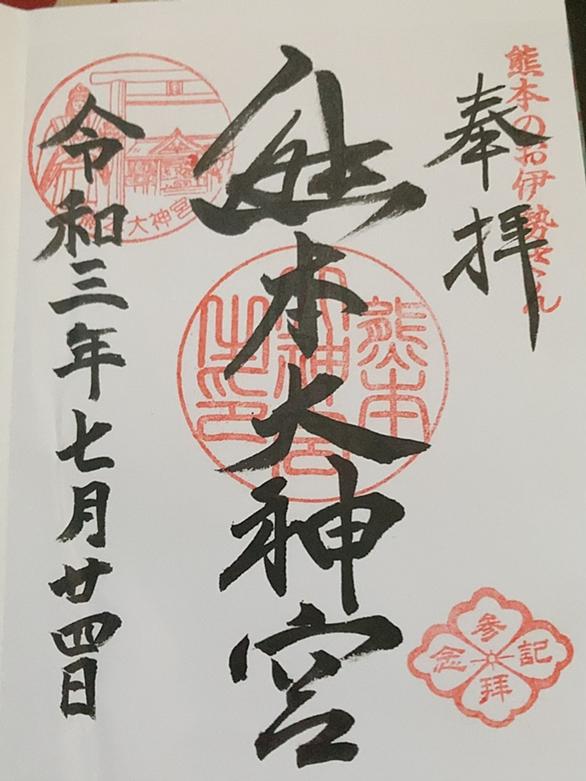 熊本のお伊勢さん
奉拝
熊本大神宮
熊本大神宮之印
令和三年七月廿四日
大神宮
参拝記念